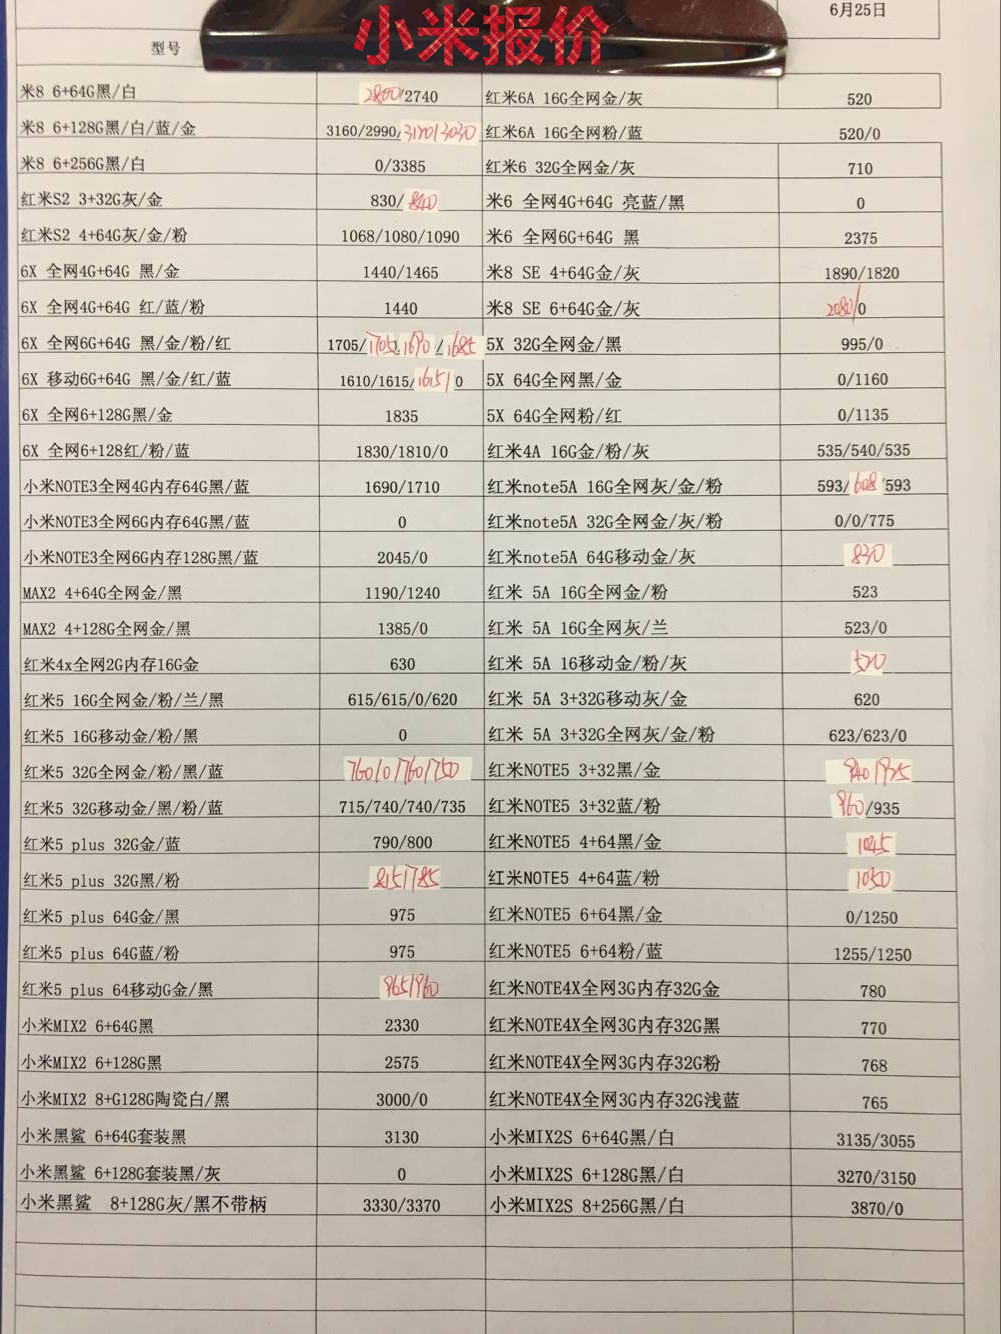 小米报价
6月25日
型号
米8 6+64G黑/白 2800/2740 红米6A 16G全网金/灰 520
米8 6+128G黑/白/蓝/金 3160/2990/3120/3030 红米6A 16G全网粉/蓝 520/0
米8 6+256G黑/白 0/3385 红米6 32G全网金/灰 710
红米S2 3+32G灰/金 830/840 米6 全网4G+64G 亮蓝/黑 0
红米S2 4+64G灰/金/粉 1068/1080/1090 米6 全网6G+64G 黑 2375
6X 全网4G+64G 黑/金 1440/1465 米8 SE 4+64G金/灰 1890/1820
6X 全网4G+64G 红/蓝/粉 1440 米8 SE 6+64G金/灰 2080/0
6X 全网6G+64G 黑/金/粉/红 1705/1705/1690/1685 5X 32G全网金/黑 995/0
6X 移动6G+64G 黑/金/红/蓝 1610/1615/1615/0 5X 64G全网黑/金 0/1160
6X 全网6+128G黑/金 1835 5X 64G全网粉/红 0/1135
6X 全网6+128红/粉/蓝 1830/1810/0 红米4A 16G金/粉/灰 535/540/535
小米NOTE3全网4G内存64G黑/蓝 1690/1710 红米note5A 16G全网灰/金/粉 593/608/593
小米NOTE3全网6G内存64G黑/蓝 0 红米note5A 32G全网金/灰/粉 0/0/775
小米NOTE3全网6G内存128G黑/蓝 2045/0 红米note5A 64G移动金/灰 830
MAX2 4+64G全网金/黑 1190/1240 红米 5A 16G全网金/粉 523
MAX2 4+128G全网金/黑 1385/0 红米 5A 16G全网灰/兰 523/0
红米4x全网2G内存16G金 630 红米 5A 16移动金/粉/灰 520
红米5 16G全网金/粉/兰/黑 615/615/0/620 红米 5A 3+32G移动灰/金 620
红米5 16G移动金/粉/黑 0 红米 5A 3+32G全网灰/金/粉 623/623/0
红米5 32G全网金/粉/黑/蓝 760/0/760/750 红米NOTE5 3+32黑/金 940/935
红米5 32G移动金/黑/粉/蓝 715/740/740/735 红米NOTE5 3+32蓝/粉 960/935
红米5 plus 32G金/蓝 790/800 红米NOTE5 4+64黑/金 1045
红米5 plus 32G黑/粉 815/785 红米NOTE5 4+64蓝/粉 1050
红米5 plus 64G金/黑 975 红米NOTE5 6+64黑/金 0/1250
红米5 plus 64G蓝/粉 975 红米NOTE5 6+64粉/蓝 1255/1250
红米5 plus 64移动G金/黑 965/960 红米NOTE4X全网3G内存32G金 780
小米MIX2 6+64G黑 2330 红米NOTE4X全网3G内存32G黑 770
小米MIX2 6+128G黑 2575 红米NOTE4X全网3G内存32G粉 768
小米MIX2 8+G128G陶瓷白/黑 3000/0 红米NOTE4X全网3G内存32G浅蓝 765
小米黑鲨 6+64G套装黑 3130 小米MIX2S 6+64G黑/白 3135/3055
小米黑鲨 6+128G套装黑/灰 0 小米MIX2S 6+128G黑/白 3270/3150
小米黑鲨 8+128G灰/黑不带柄 3330/3370 小米MIX2S 8+256G黑/白 3870/0